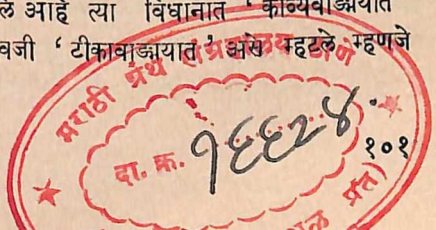 लं आहे त्या विधानात ' काव्यवाङ्मयात
वजी ' टीकावाङ्मयात ' असे म्हटले म्हणजे
मराठी ग्रंथ संग्रहालय ठाणे
दा. क्र. १६६२४.
१०१
प्रत)